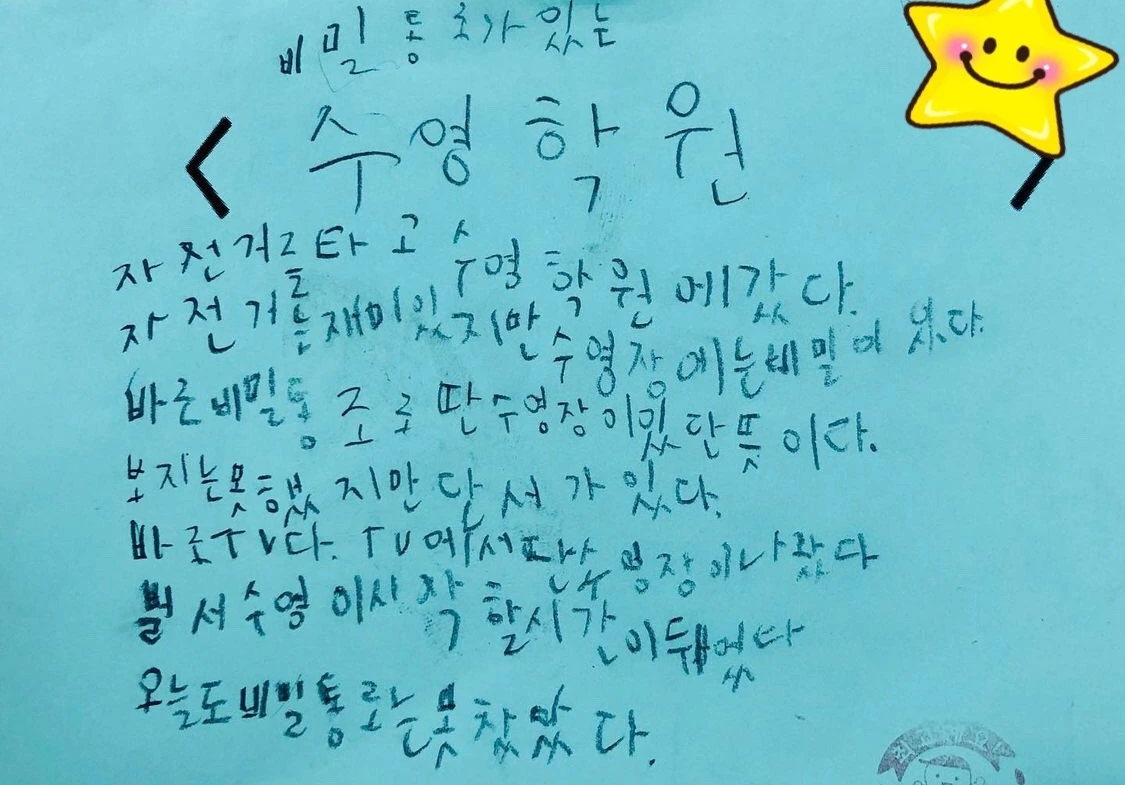 비밀 통로가 있는
< 수영 학원 >
자전거를 타고 수영 학원에 갔다.
자전거는 재미있지만 수영장에는 비밀이 있다.
바른 비밀통 조로 딴 수영장이 있단 뜻이다.
보지는 못했지만 단서가 있다.
바로 TV다. TV에서 딴 수영장이 나왔다
벌서 수영이 시작할 시간이 됐었다
오늘도 비밀통로는 못찾았다.